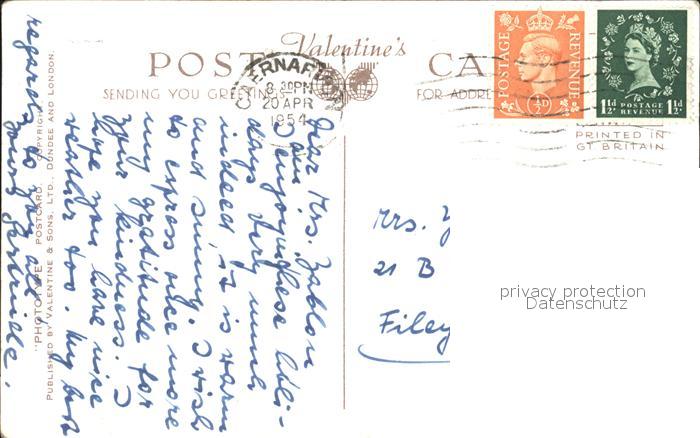 POST CARD
Valentine's
SENDING YOU GREETINGS
FOR ADDRE
CAERNARFON
8.30PM
20 APR
1954
POSTAGE REVENUE
½D
1½D POSTAGE REVENUE 1½D
PRINTED IN
GT BRITAIN
Dear Mrs. Zablon
I am enjoying these holi-
days very much
indeed, it is warm
and sunny. I wish
to express once more
my gratitude for
your kindness. I
hope you have nice
weather too. My best
regards to you all
Young Gertrude.
"PHOTOTYPE" POSTCARD. COPYRIGHT
PUBLISHED BY VALENTINE & SONS, LTD., DUNDEE AND LONDON.
Mrs.
21 B
Filey
privacy protection
Datenschutz